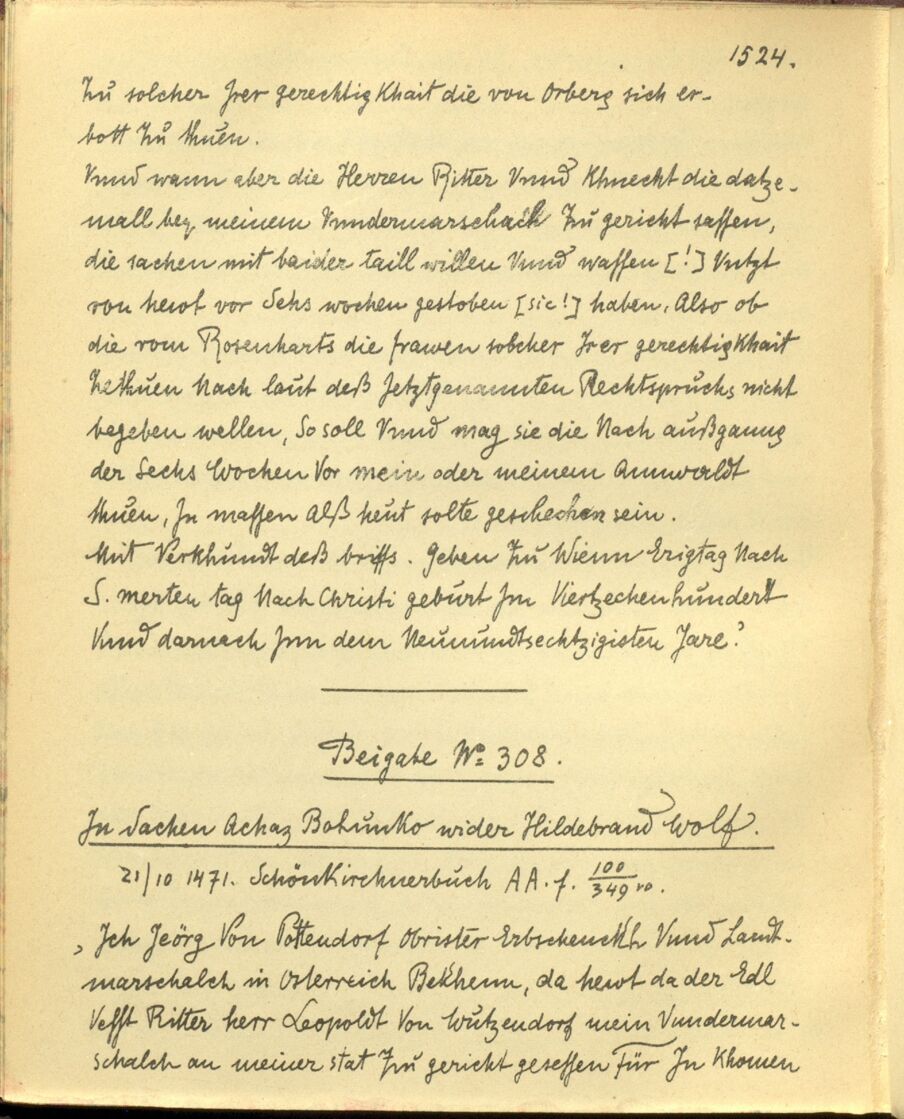 1524.
Zu solcher Irer gerechtigkhait die von Orberg sich er-
bott zu thuen.
Vnnd wann aber die Herren Ritter Vnnd Khnecht die datze-
mall bey meinem Vnndermarschach zu gericht sassen,
die sachen mit baider taill willen Vnnd waffen [!] Vntzt
von hewt vor Sehs wochen gestoben [sic!] haben, Also ob
die vom Rosenharts die frawen solcher Irer gerechtigkhait
zethuen Nach laut deß Jetztgenannten Rechtspruchs nicht
begeben wellen, So soll Vnnd mag sie die Nach außganng
der Sechs Wochen Vor mein oder meinem Annwaldt
thuen, In massen Alß heut solte geschechen sein.
Mit Verkhundt deß briffs. Geben Zu Wienn Erigtag Nach
S. merten tag Nach Christi geburt Im Viertzechenhundert
Vnnd darnach Inn dem Neunundtsechtzigisten Jare.'
Beigabe No 308.
In Sachen Achaz Bohunko wider Hildebrand Wolf.
21/10 1471. Schönkirchnerbuch AA. f. 100/349 vo.
‚Ich Jeörg Von Pottendorf Obrister Erbschenckh Vnnd Landt-
marschalch in Osterreich Bekhenn, da hewt da der Edl
Vesst Ritter herr Leopoldt Von Wutzendorf mein Vundermar-
schalch an meiner stat Zu gericht gesessen Für In Khomen